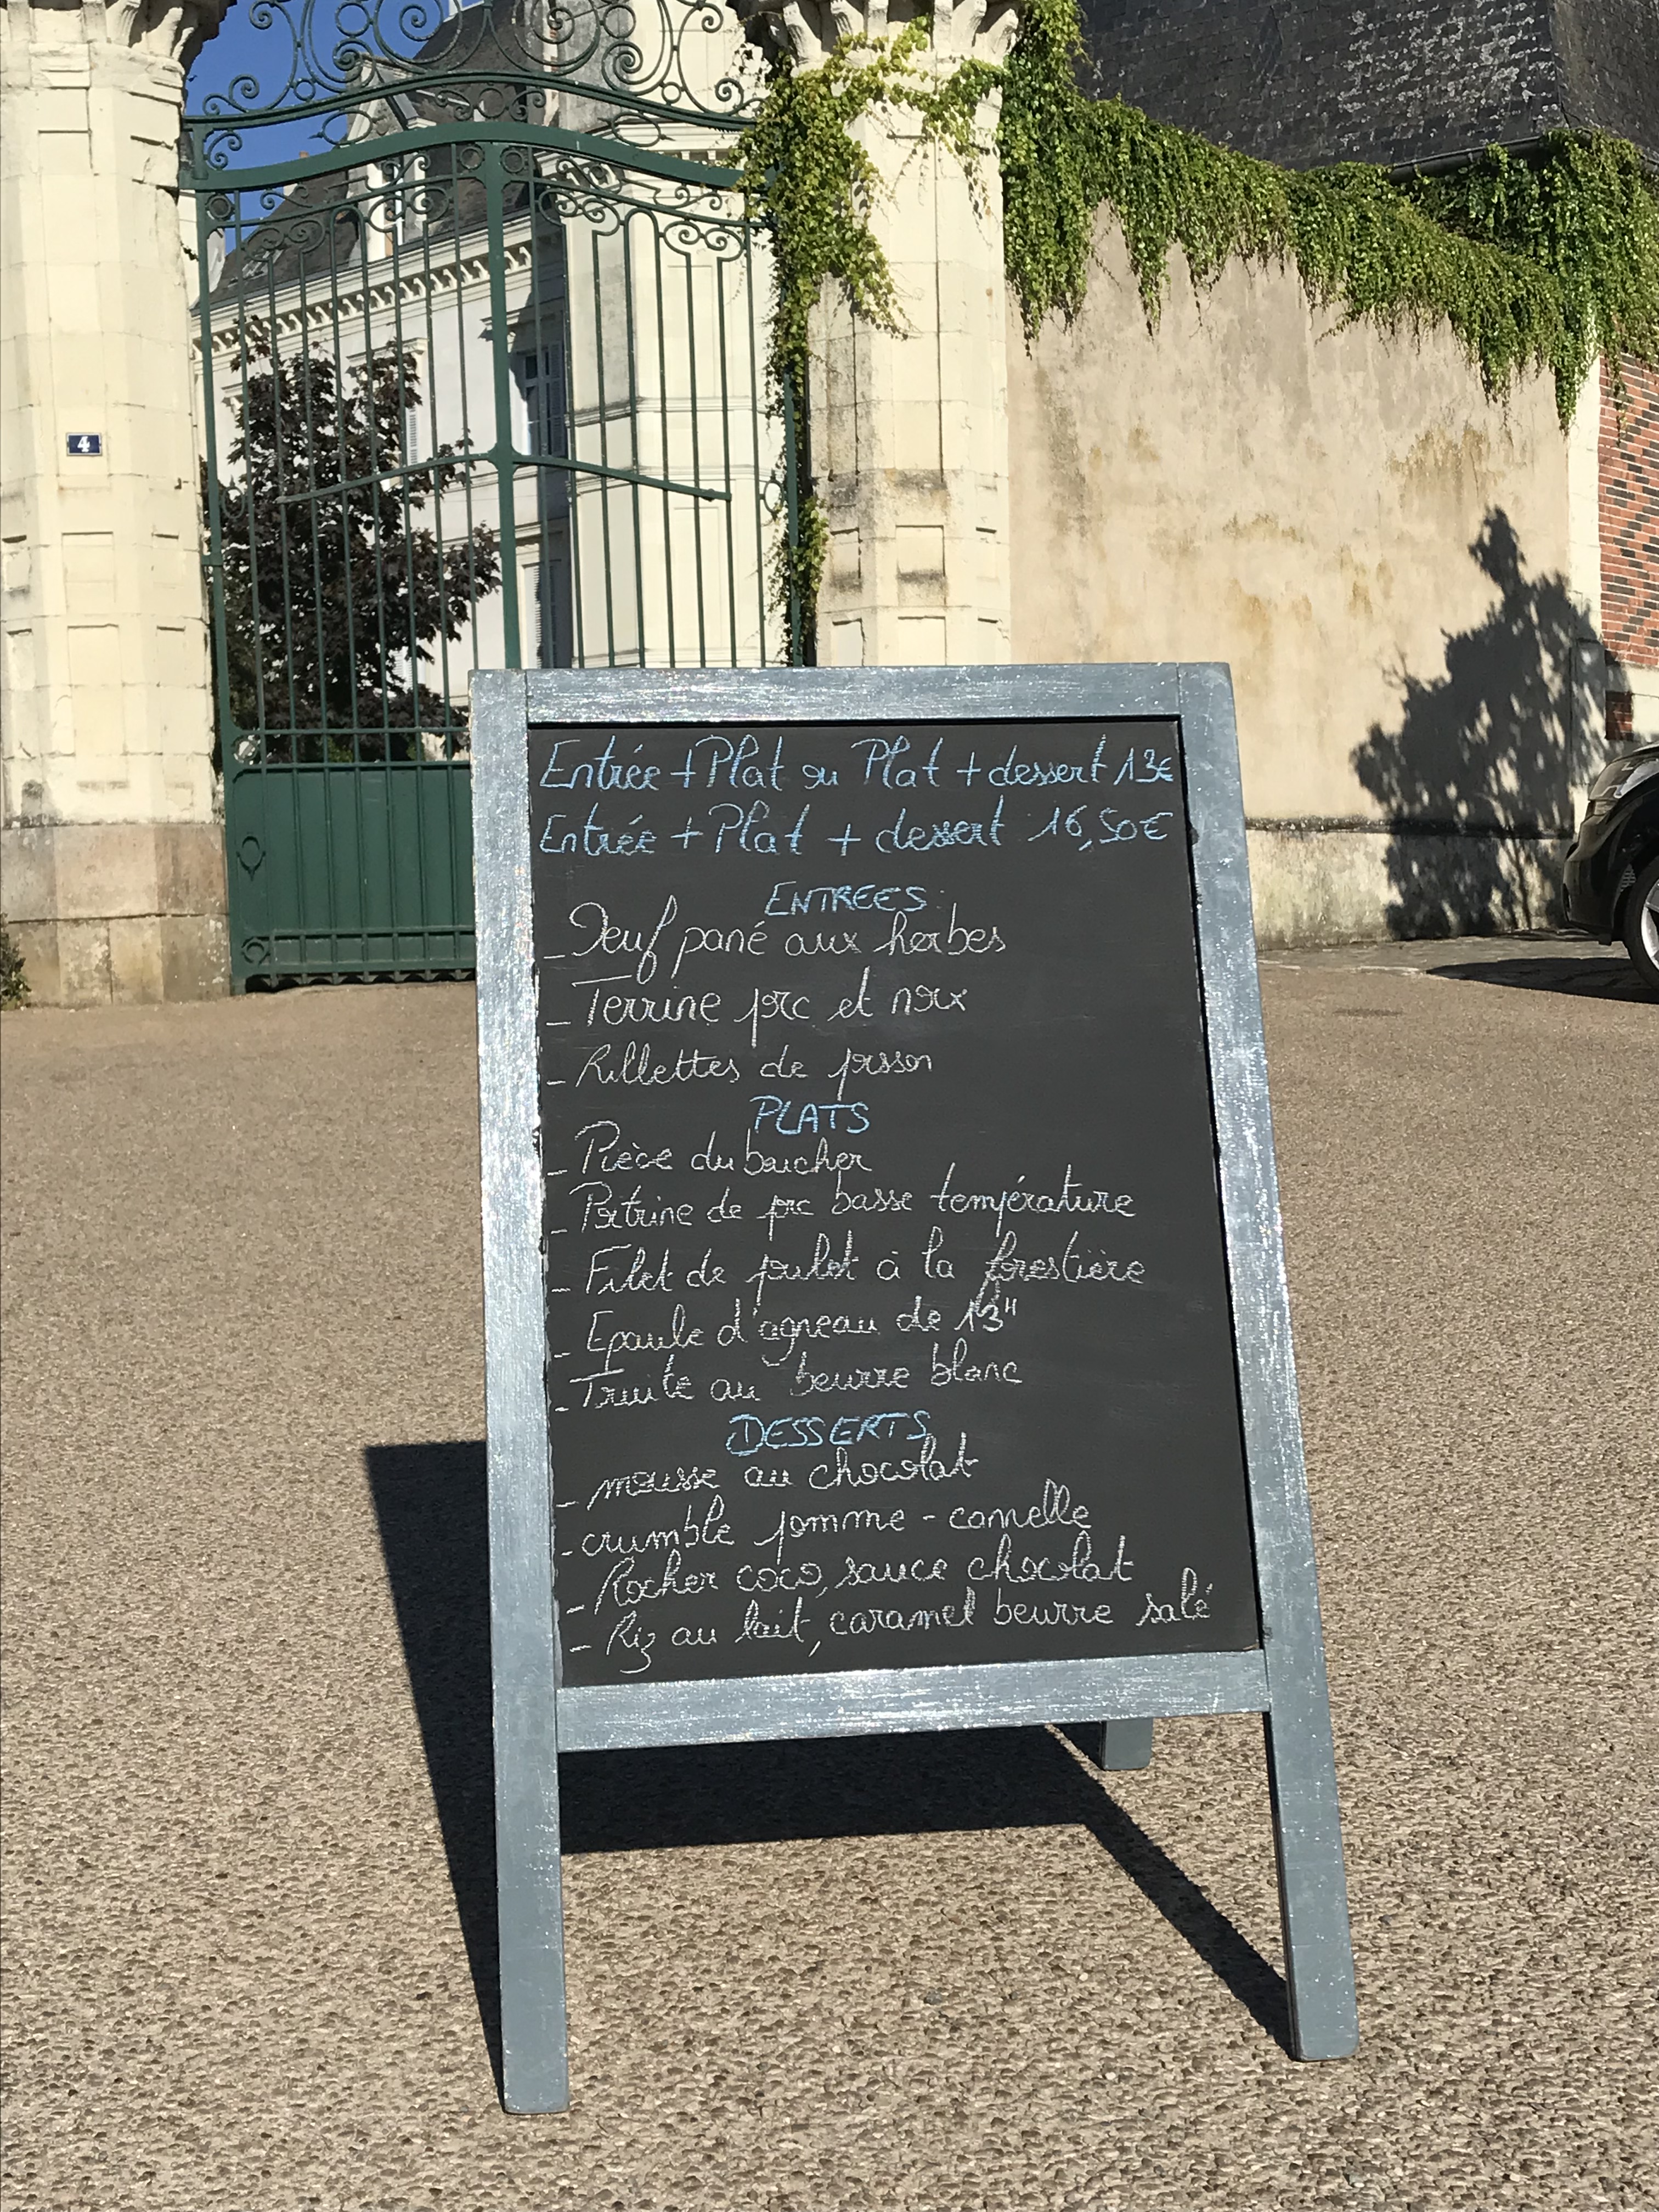 4
Entrée + Plat ou Plat + dessert 13€
Entrée + Plat + dessert 16,50€
ENTREES:
- Oeuf pané aux herbes
- Terrine porc et noix
- Rillettes de poisson
PLATS
- Pièce du boucher
- Poitrine de porc basse température
- Filet de poulet à la forestière
- Epaule d'agneau de 13H
- Truite au beurre blanc
DESSERTS
- mousse au chocolat
- crumble pomme - cannelle
- Rocher coco, sauce chocolat
- Riz au lait, caramel beurre salé